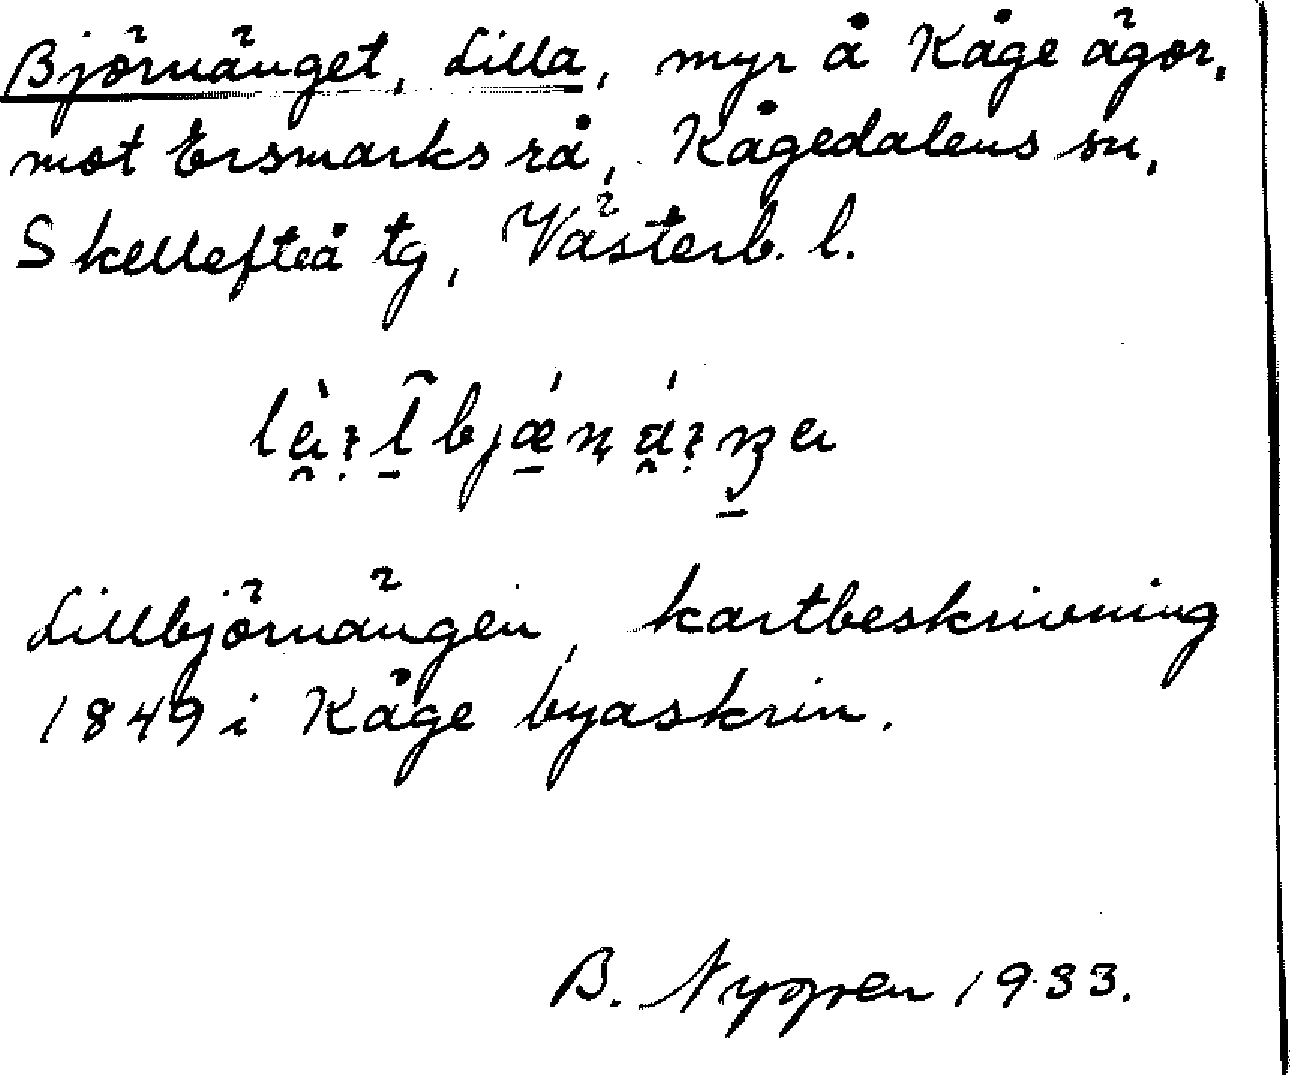 Björnänget, Lilla, myr å Kåge ägor,
mot Ersmarks rå, Kågedalens sn,
Skellefteå tg, Västerb. l.
Lillbjörnängen, kartbeskrivning
1849 i Kåge byaskrin.
B. Nygren 1933.